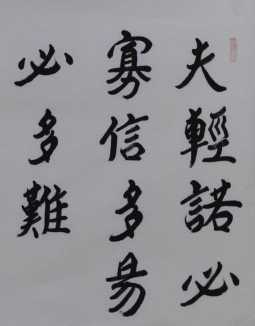 夫輕諾必
寡信多易
必多難